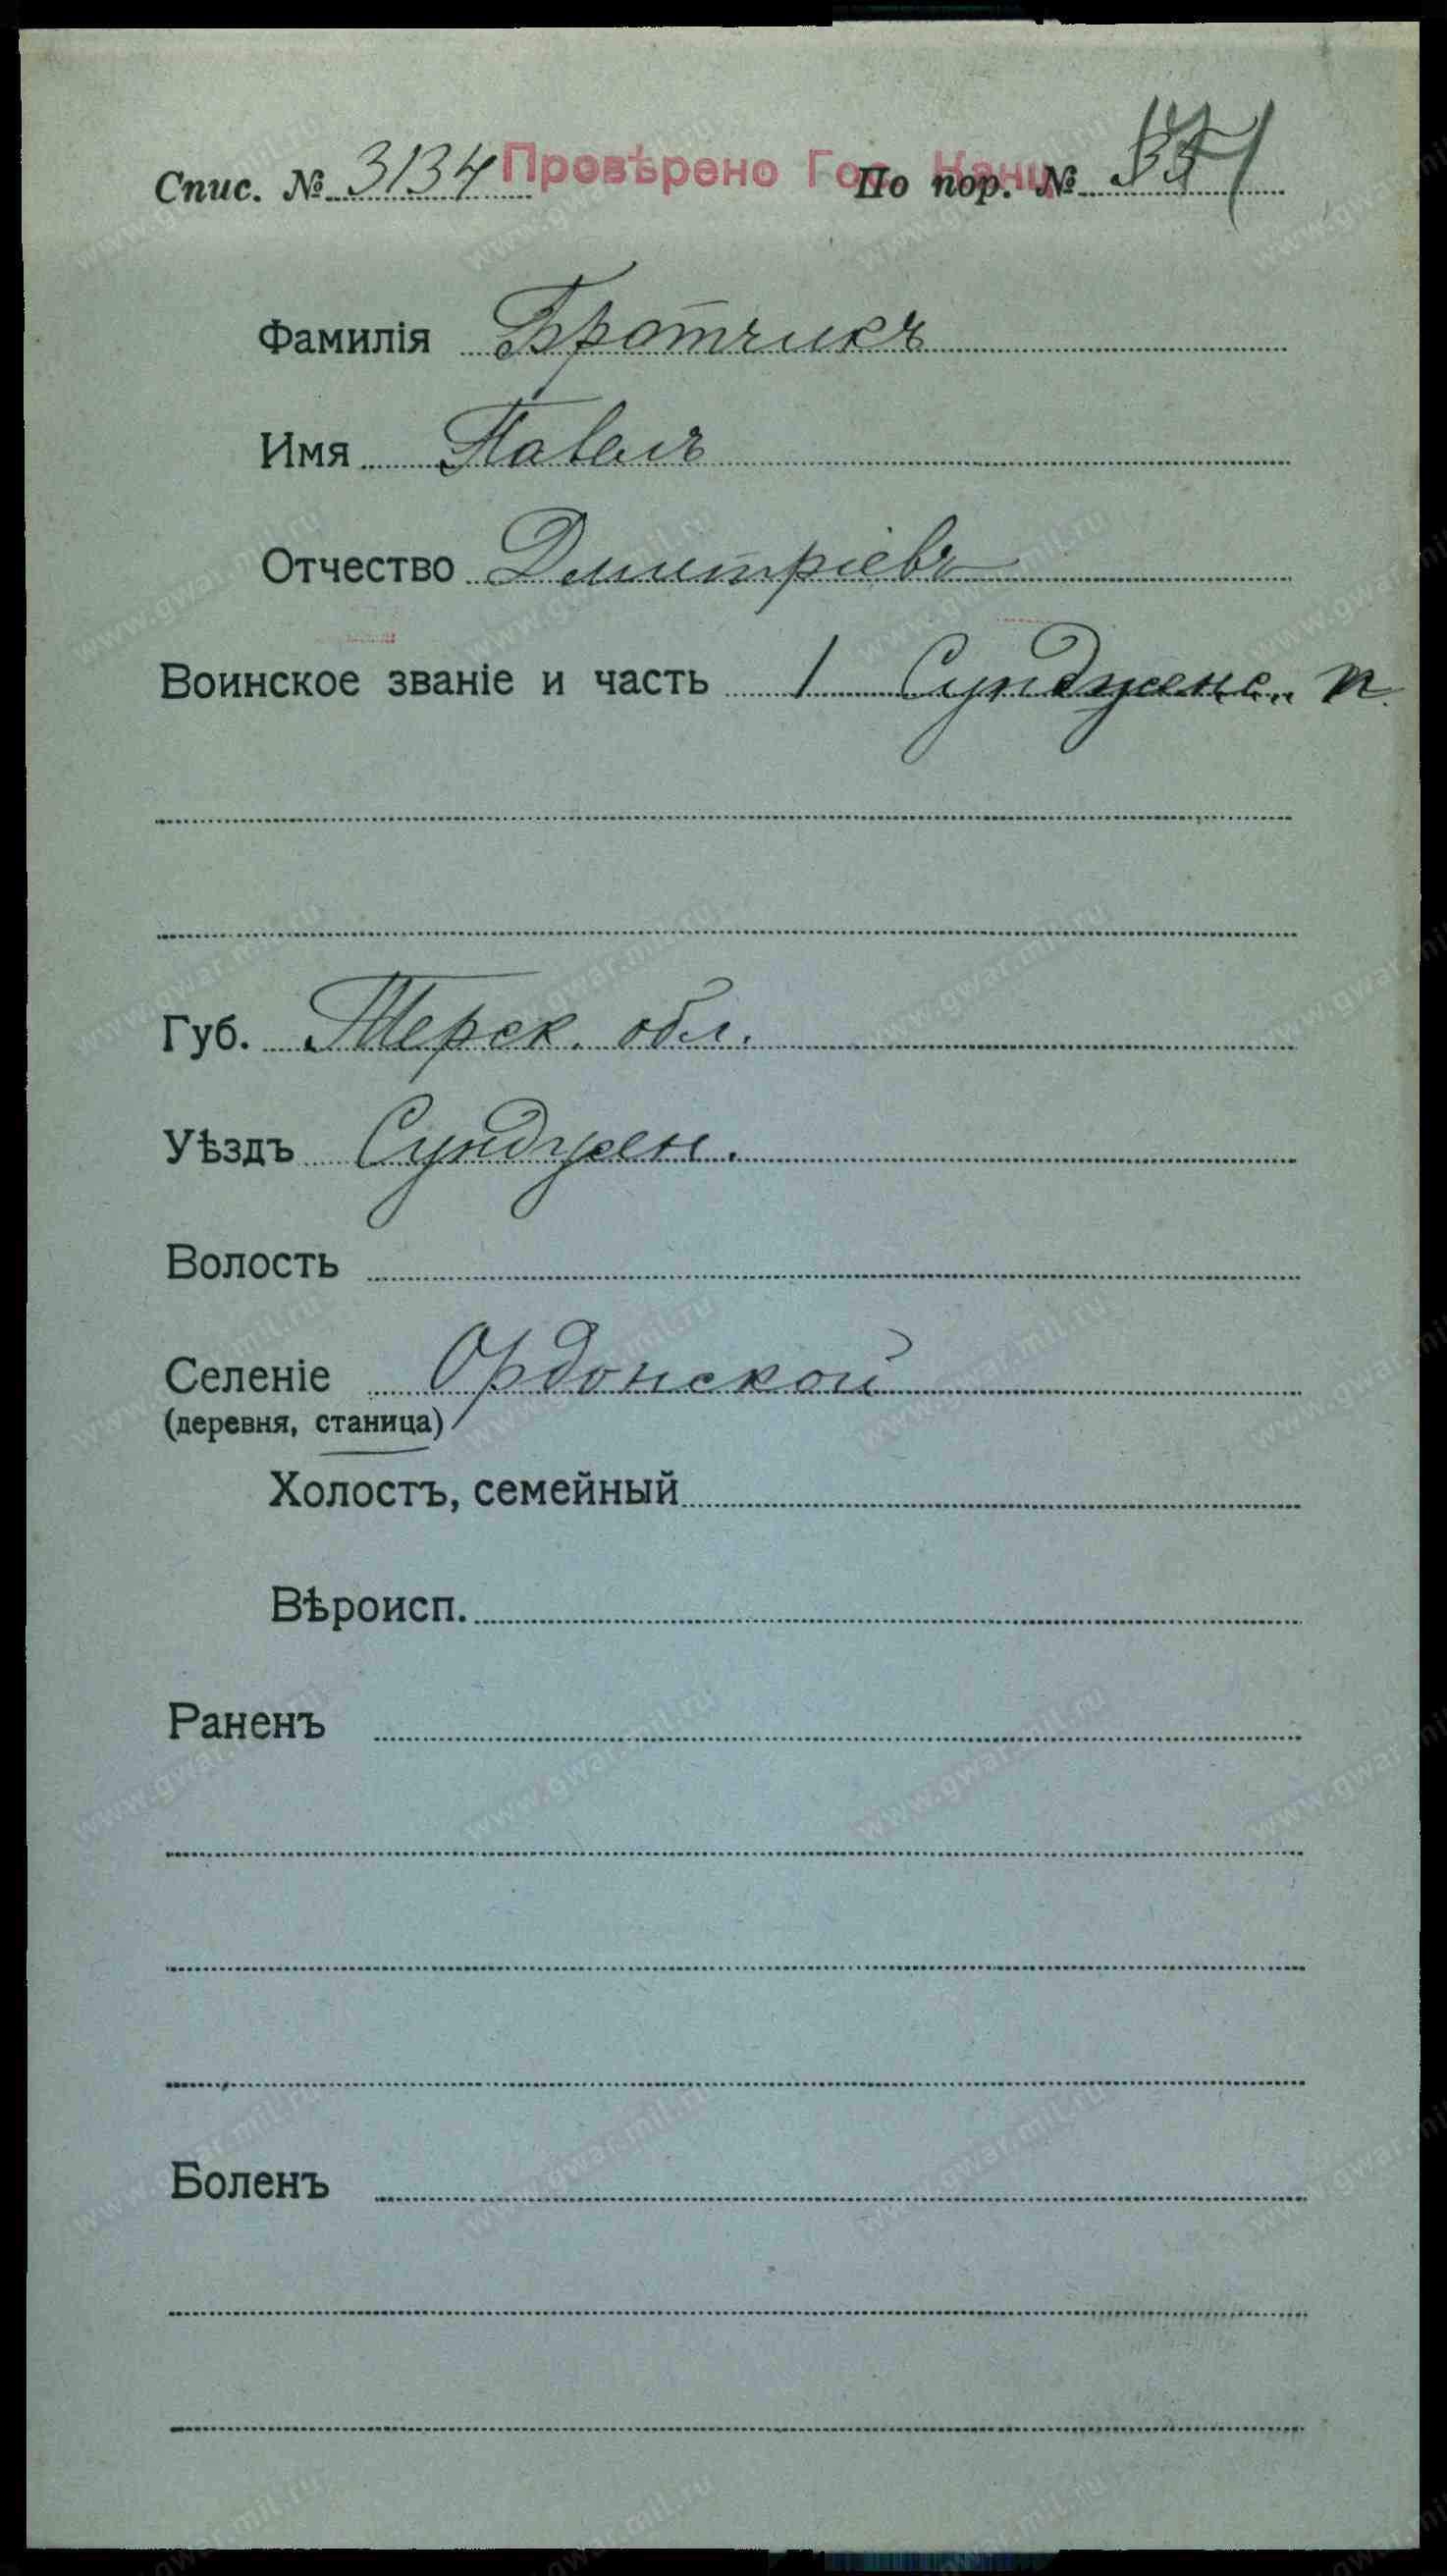 Спис. № 3134 Провѣрено Гос. Канц. По пор. №
Фамилія Братчикъ
Имя Павелъ
Отчество Дмитріевъ
Воинское званіе и часть 1 Сунженс. п.
Губ. Терск. обл.
Уѣздъ Сунджен.
Волость
Селеніе Ордонской
(деревня, станица)
Холостъ, семейный
Вѣроисп.
Раненъ
Боленъ